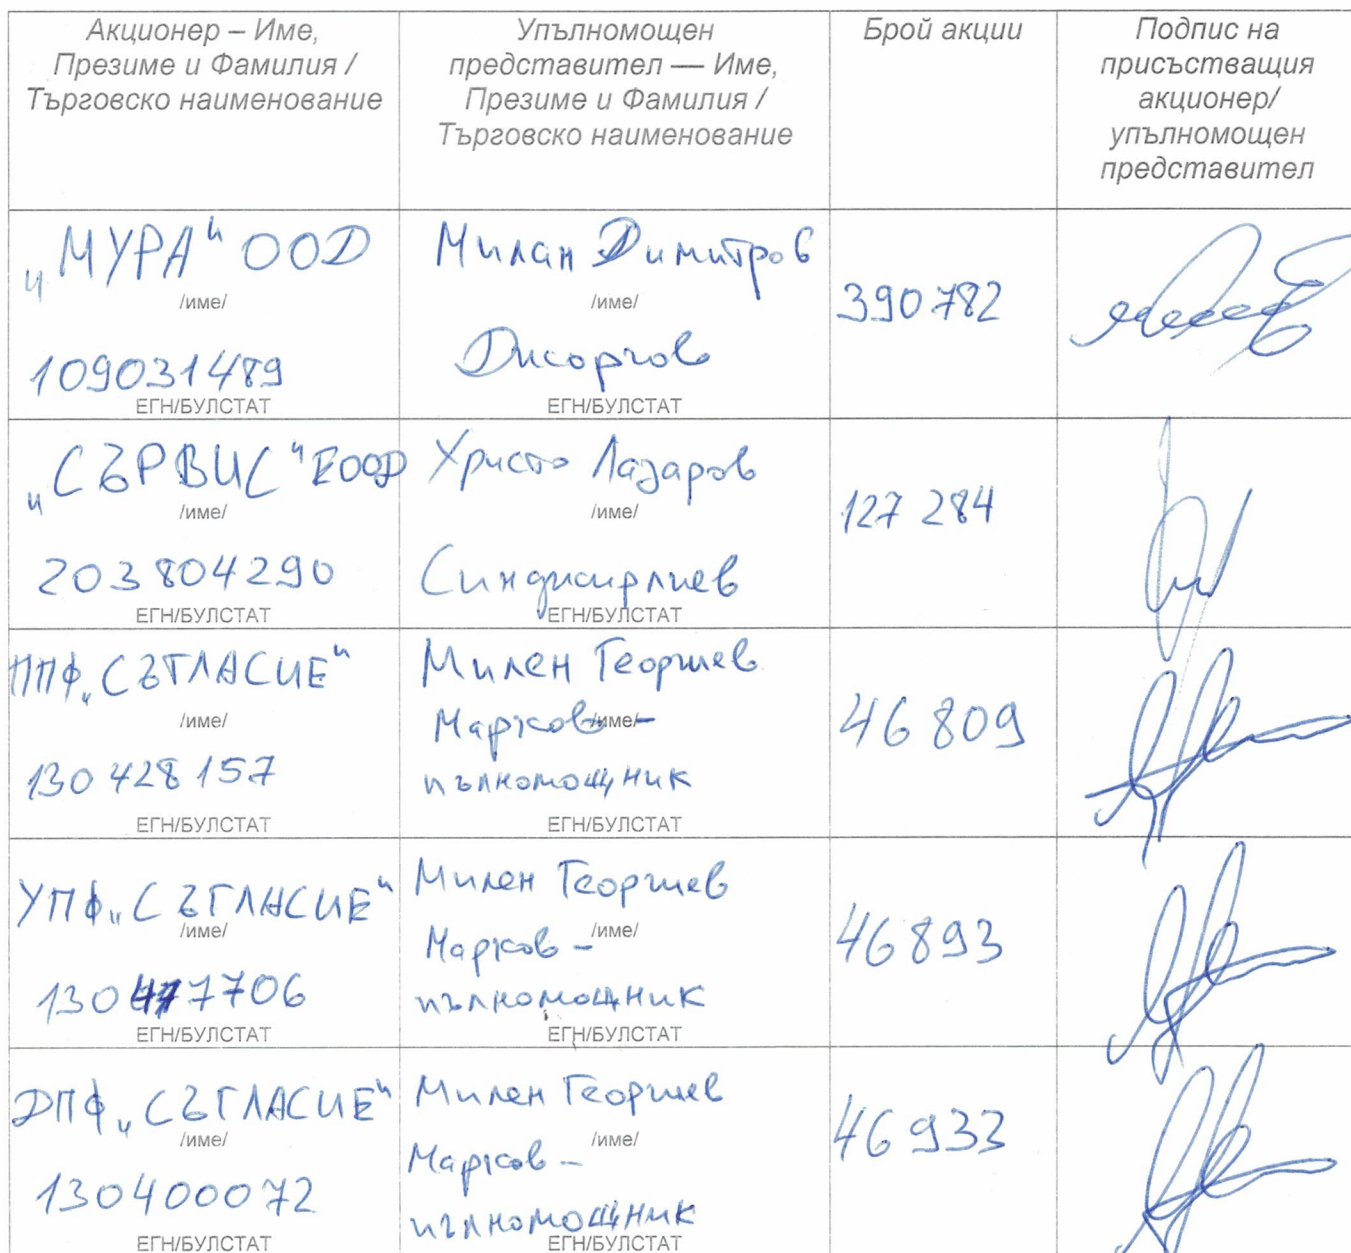 Акционер – Име,
Презиме и Фамилия /
Търговско наименование
Упълномощен
представител — Име,
Презиме и Фамилия /
Търговско наименование
Брой акции
Подпис на
присъстващия
акционер/
упълномощен
представител
„МУРА“ ООД
/име/
109031489
ЕГН/БУЛСТАТ
Милан Димитров
/име/
ЕГН/БУЛСТАТ
390782
„СЪРВИС“ ЕООД
/име/
203804290
ЕГН/БУЛСТАТ
Христо Лазаров
/име/
ЕГН/БУЛСТАТ
127 284
ППФ „СЪГЛАСИЕ“
/име/
130428157
ЕГН/БУЛСТАТ
Милен Георгиев
Марков –
/име/
пълномощник
ЕГН/БУЛСТАТ
46 809
УПФ „СЪГЛАСИЕ“
/име/
ЕГН/БУЛСТАТ
Милен Георгиев
/име/
Марков –
пълномощник
ЕГН/БУЛСТАТ
46893
ДПФ „СЪГЛАСИЕ“
/име/
130400072
ЕГН/БУЛСТАТ
Милен Георгиев
/име/
Марков –
пълномощник
ЕГН/БУЛСТАТ
46 933